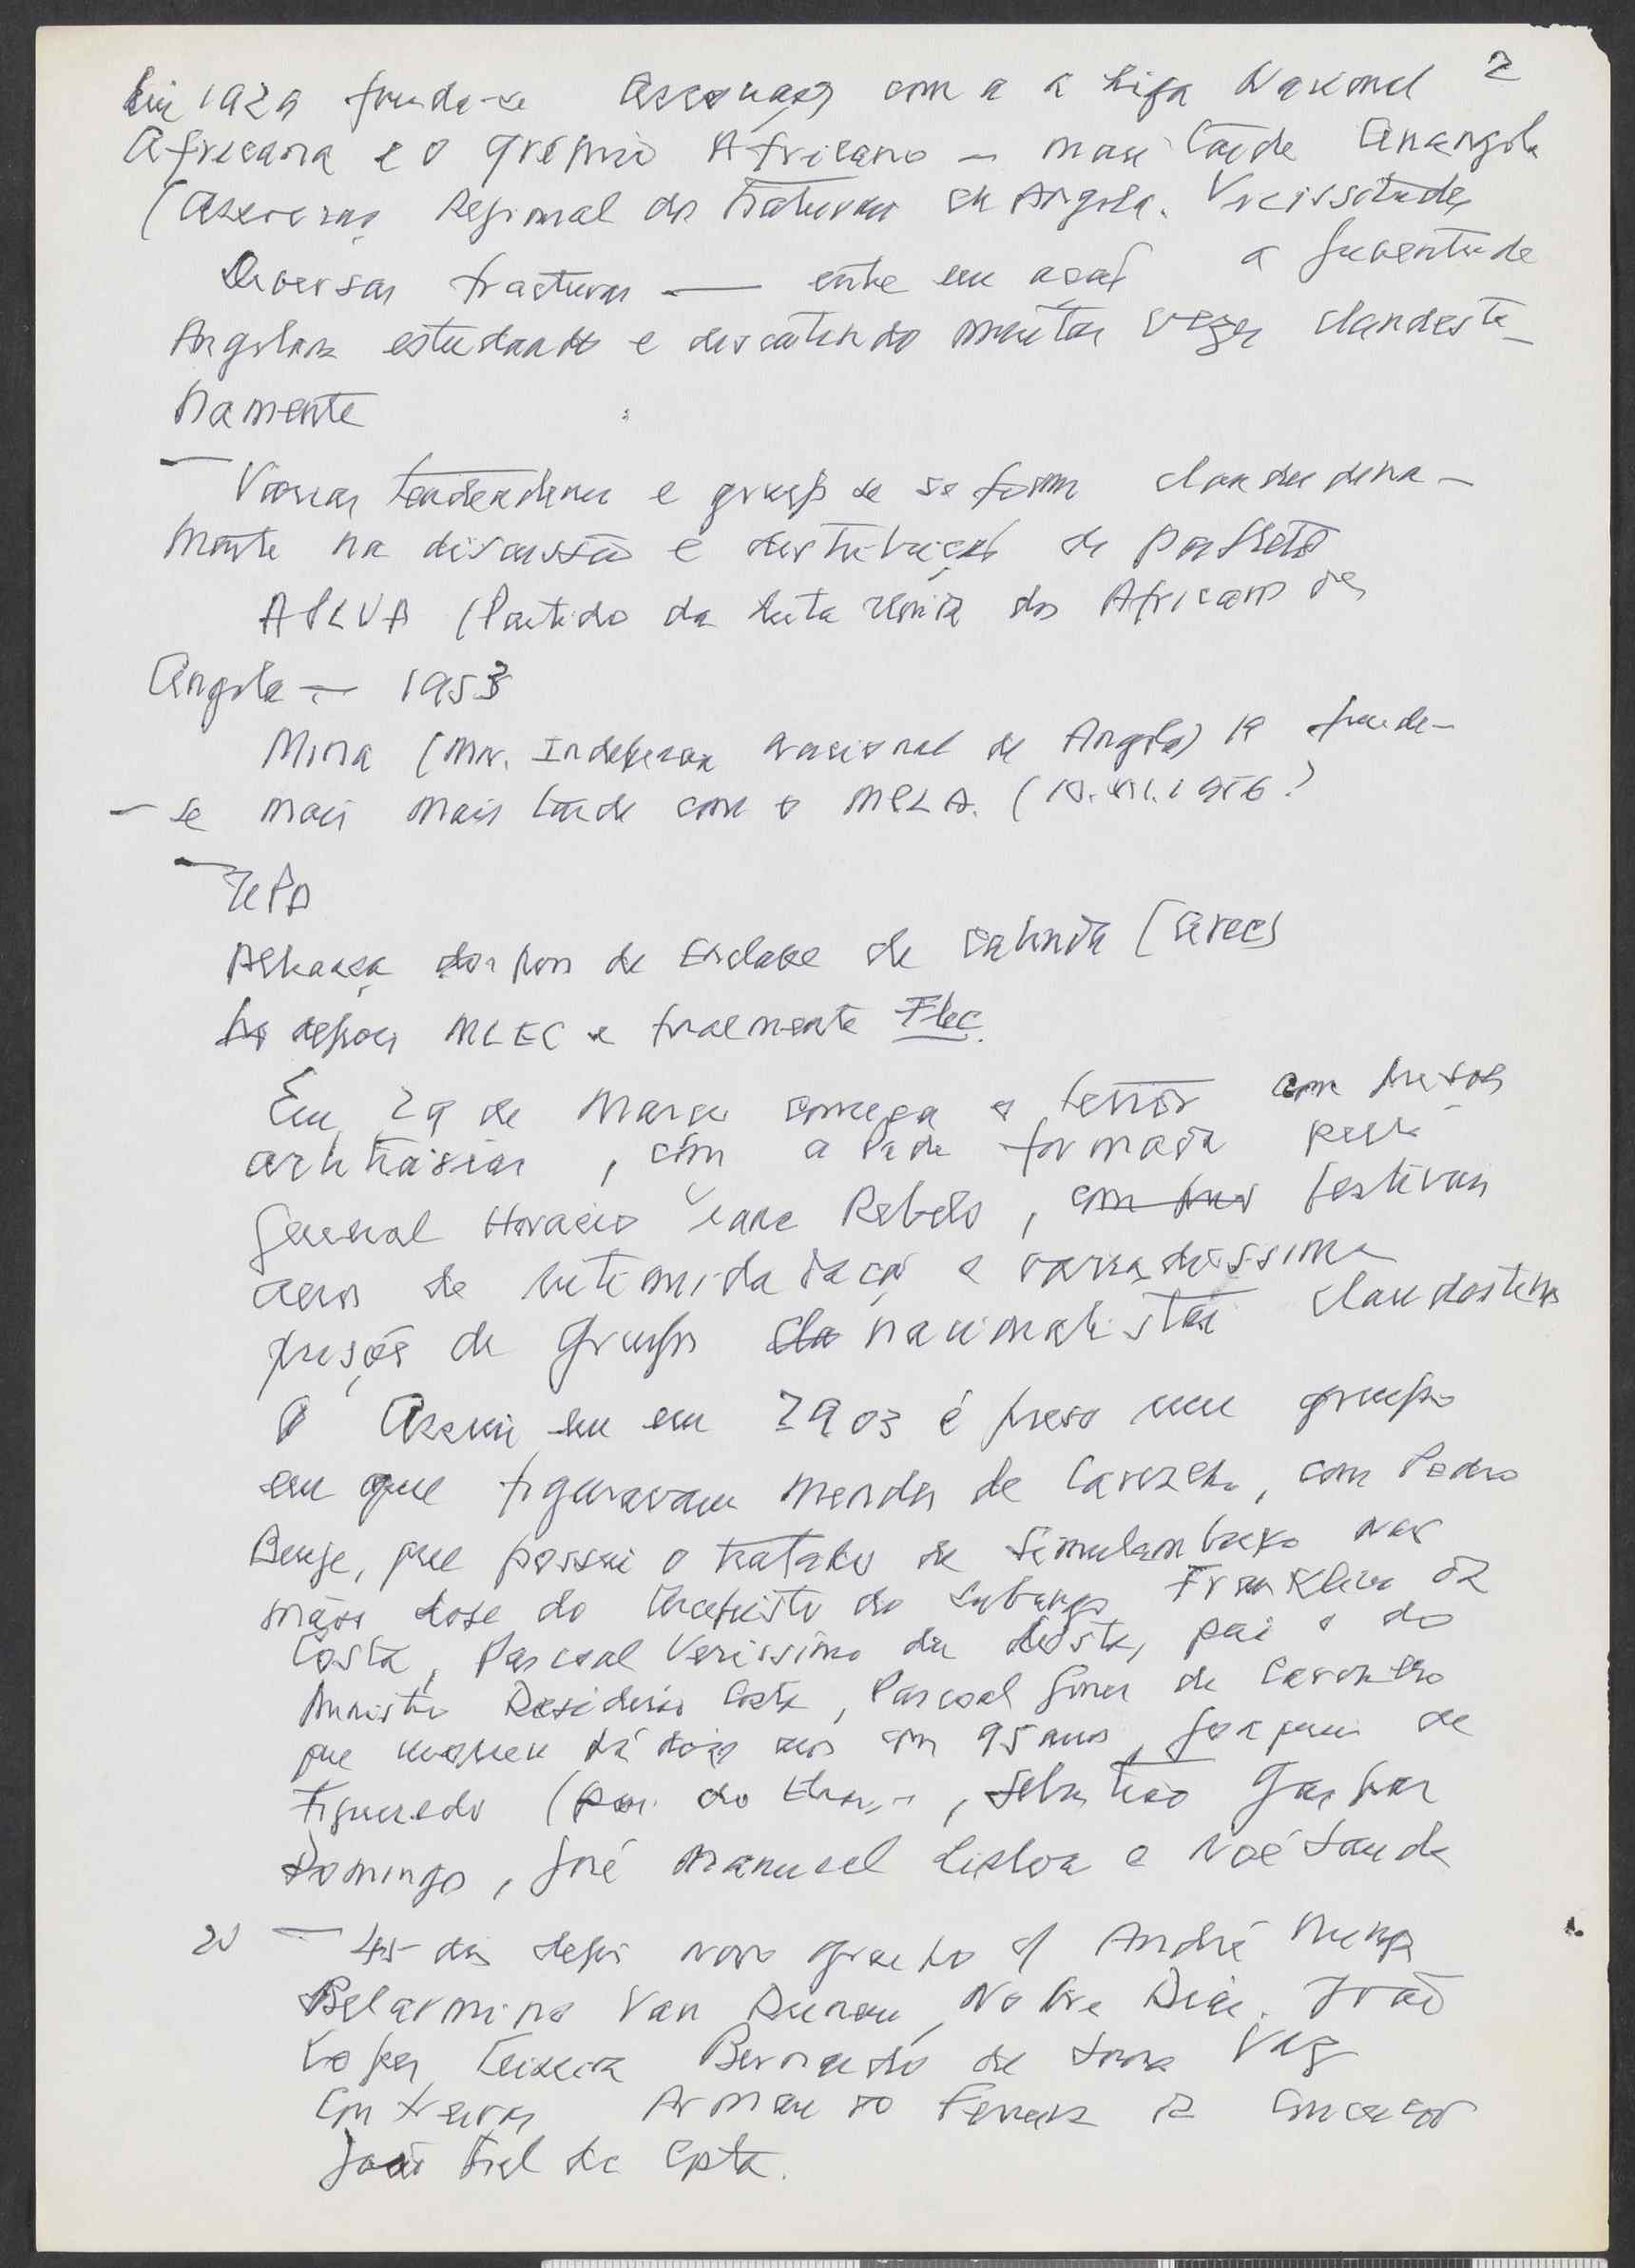 2
Em 1929 funda-se Associação com a a Liga Nacional
Africana e o Grémio Africano — mais tarde Anangola
(Associação Regional dos Naturais de Angola. Vicissitudes
Diversas fracturas — entre em acção a Juventude
Angolana estudando e discutindo muitas vezes clandesti-
namente
— Varias tendencias e grupos se se formam clandestina-
mente na discussão e distribuição de panfletos
APLUA (Partido da Luta Unida dos Africanos de
Angola — 1953
Mina (Mov. Independencia Nacional de Angola) funde-
— se mais mais tarde com o MPLA. (10.XII.1956?
— UPA
Aliança do Enclave de Cabinda
depois MLEC e finalmente Flec.
Em 29 de Março começa o terror com prisões
arbitrárias, com a Pide formada pelo
General Horacio Viana Rebelo, com festivais
aereos de intimidação e variadissimas
prisões de grupos nacionalistas clandestinos
Assim em em 29 03 é preso um grupo
em que figuravam Mendes de Carvalho, com Pedro
Benge, que possui o tratado de Simulambuco nas
mãos do Arcebispo do Lubango Franklim da
Costa, Pascoal Verissimo da Costa, pai do
Ministro Desiderio Costa, Pascoal Gomes de Carvalho
que morreu há dois anos com 95 anos, Joaquim de
Figueiredo (pai do Elisio, Sebastião Gaspar
Domingos, José Manuel Lisboa e Noé Saude
— 45 dias depois novo grupo c/ André Mingas
Belarmino Van Dunem, Nobre Dias. João
Lopes Teixeira Bernardo de Sousa Vaz
Contreiras Armando Ferreira da Conceição
João Fial da Costa.